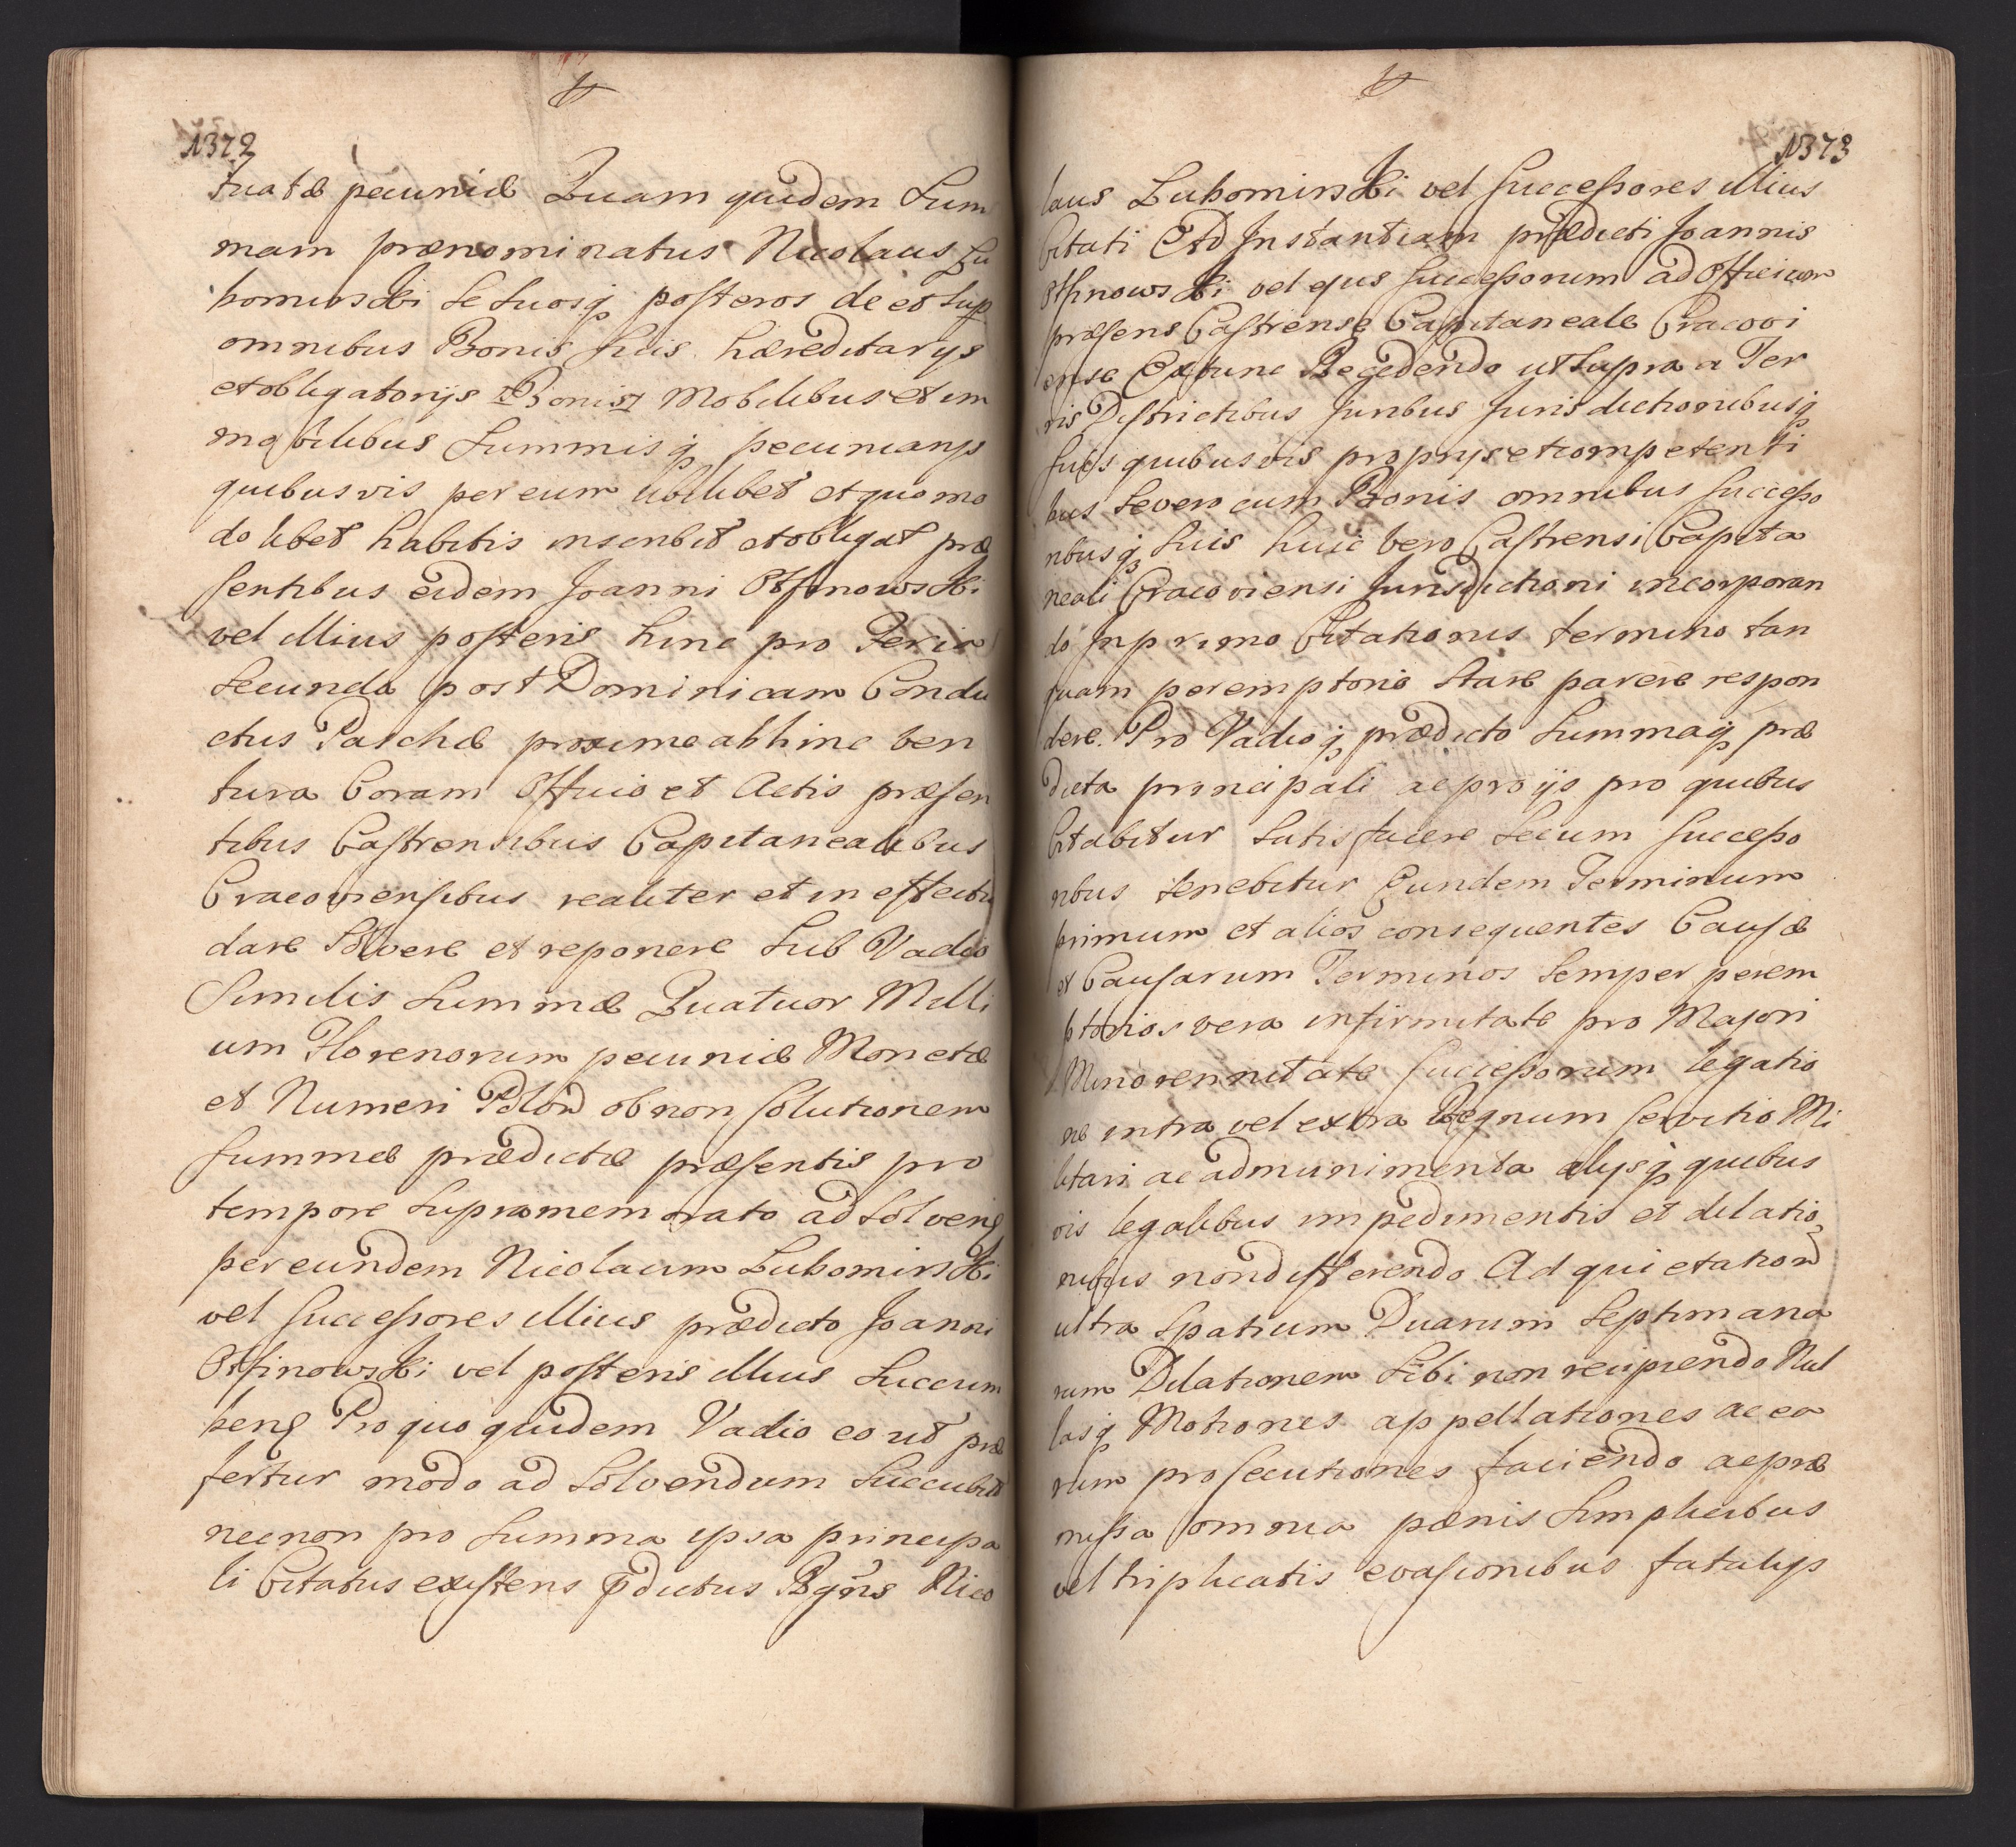 1372
tuatæ pecuniæ Quam quidem Sum
mam prænominatus Nicolaus Lu
bomirski se suosq posteros de et sup
omnibus Bonis suis hæreditarys
et obligatorijs Bonis Mobilibus et im
mobilibus Summisq pecuniarys
quibusvis per eum ubilibet et quomo
do libet habitis inscribit et obligat præ
sentibus eidem Joanni Otfinowski
vel illius posteris hinc pro Feria
secunda post Dominicam Condu
ctus Paschæ proxime abhinc ven
tura Coram Officio et Actis præsen
tibus Castrensibus Capitanealibus
Cracoviensibus realiter et in effectu
dare Solvere et reponere Sub Vadio
Similis Summæ Quatuor Milli
um Florenorum pecuniæ Monetæ
et Numeri Polon ob non solutionem
summæ prædictæ præsentis pro
tempore supramemorato ad solvend
per eundem Nicolaum Lubomirski
vel successores illius prædicto Joanni
Otfinowski vel posteris illius succum
bend Pro quo quidem Vadio eo ut præ
fertur modo ad Solvendum Succubito
necnon pro Summa ipsa principa
li Citatus existens pdictus Ggns Nico
1373
laus Lubomirski vel successores illius
Citati Ad Instantiam prædicti Joannis
Otfinowski vel ejus successorum ad Officium
præsens Castrense Capitaneale Cracovi
ense Extunc Recedendo ut supra a Ter
ris Districtibus Juribus Jurisdictionibusq
suis quibusvis proprys et competenti
bus se vero cum Bonis omnibus successo
ribusq suis huic vero Castrensi Capita
neali Cracoviensi Jurisdictioni incorporan
do In primo Citationis termino tan
quam peremptorio Stare parere respon
dere. Pro Vadioq prædicto Summaq præ
dicta principali ac pro ijs pro quibus
Citabitur Satisfacere Secum successo
ribus tenebitur Eundem Terminum
primum et alios consequentes Causæ
et Causarum Terminos Semper perem
ptorios vera infirmitate pro Majori
Minorennitate successorum legatio
ne intra vel extra Regnum servitio Mi
litari ac ad munimenta alysq quibus
vis legalibus impedimentis et dilatio
nibus non differendo Ad quietation
ultra Spatium Duarum Septimana
rum Dilationem Sibi non recipiendo Nul
lasq Motiones appellationes ac ea
rum prosecutiones faciendo ac præ
missa omnia pænis Simplicibus
vel triplicatis evasionibus fatalys